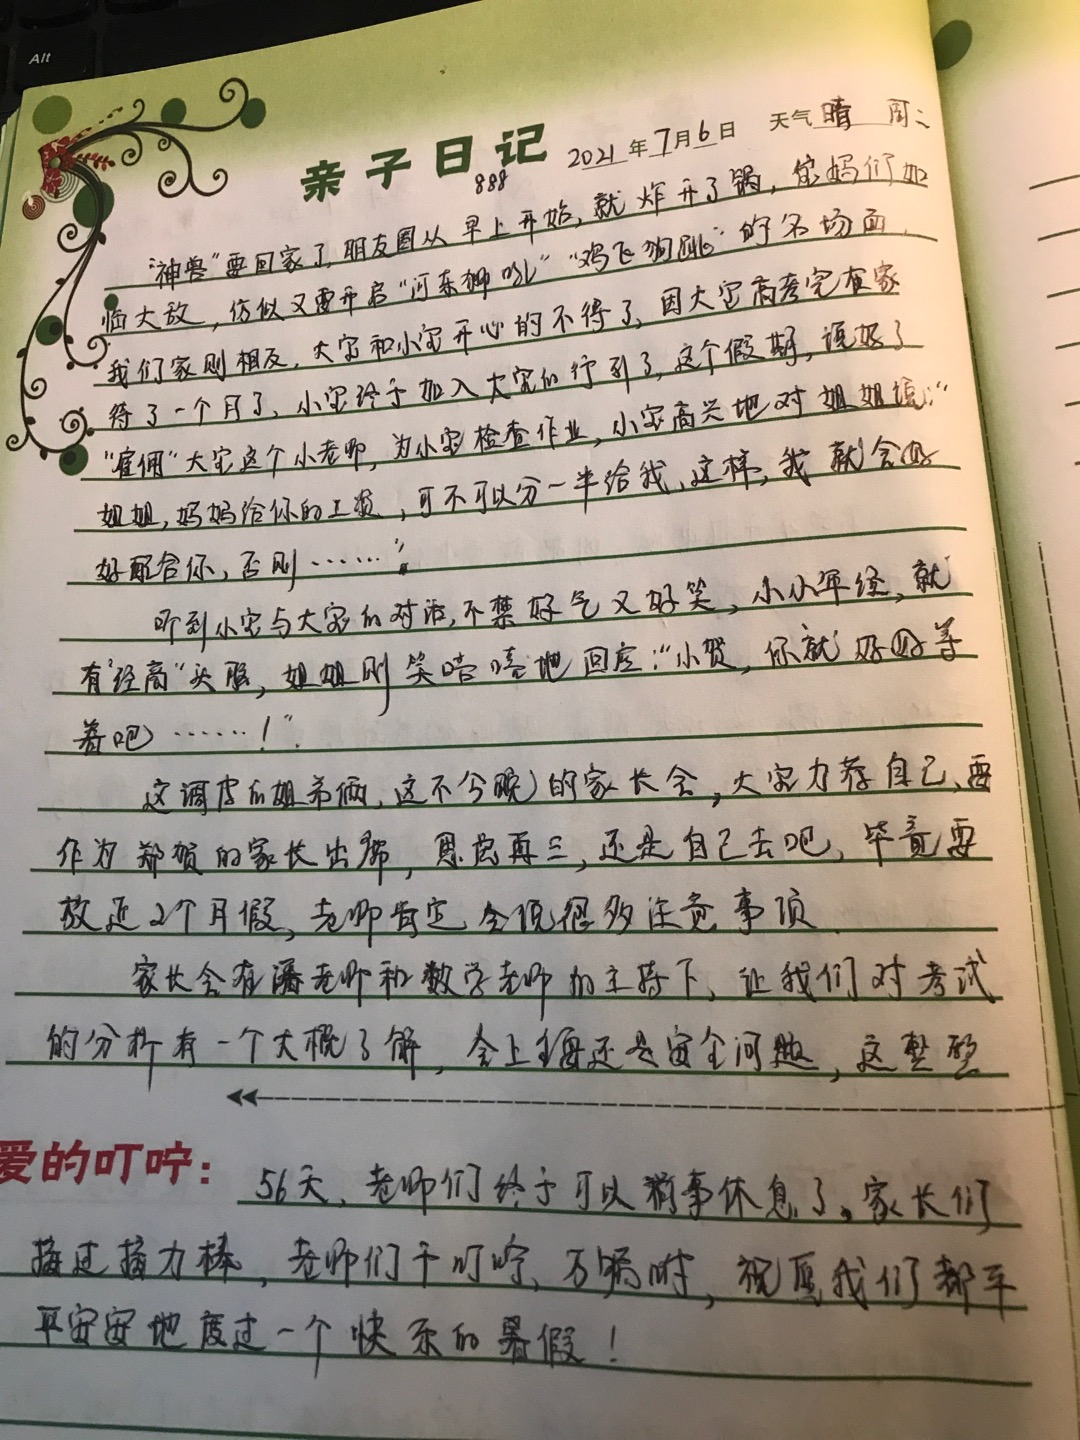 Alt
亲子日记 2021年7月6日 天气 晴 周二
888
"神兽"要回家了,朋友圈从早上开始,就炸开了锅,宝妈们如
临大敌,仿似又要开启"河东狮吼""鸡飞狗跳"的名场面.
我们家则相反,大宝和小宝开心的不得了,因大宝高考完在家
待了一个月了,小宝终于加入大宝的行列了,这个假期,说好了
"雇佣"大宝这个小老师,为小宝检查作业,小宝高兴地对姐姐说:"
姐姐,妈妈给你的工资,可不可以分一半给我,这样,我就会好
好配合你,否则……"
听到小宝与大宝的对话,不禁好气又好笑,小小年经,就
有"经商"头脑,姐姐则笑嘻嘻地回应:"小贺,你就好好等
着吧……!".
这调皮的姐弟俩,这不今晚的家长会,大宝力荐自己,要
作为郑贺的家长出席,思虑再三,还是自己去吧,毕竟要
放近2个月假,老师肯定会说很多注意事项.
家长会在潘老师和数学老师的主持下,让我们对考试
的分析有一个大概了解,会上主要还是安全问题,这整整
爱的叮咛:
56天,老师们终于可以稍事休息了。家长们
接过接力棒,老师们千叮咛、万嘱咐,祝愿我们都平
平安安地度过一个快乐的暑假!